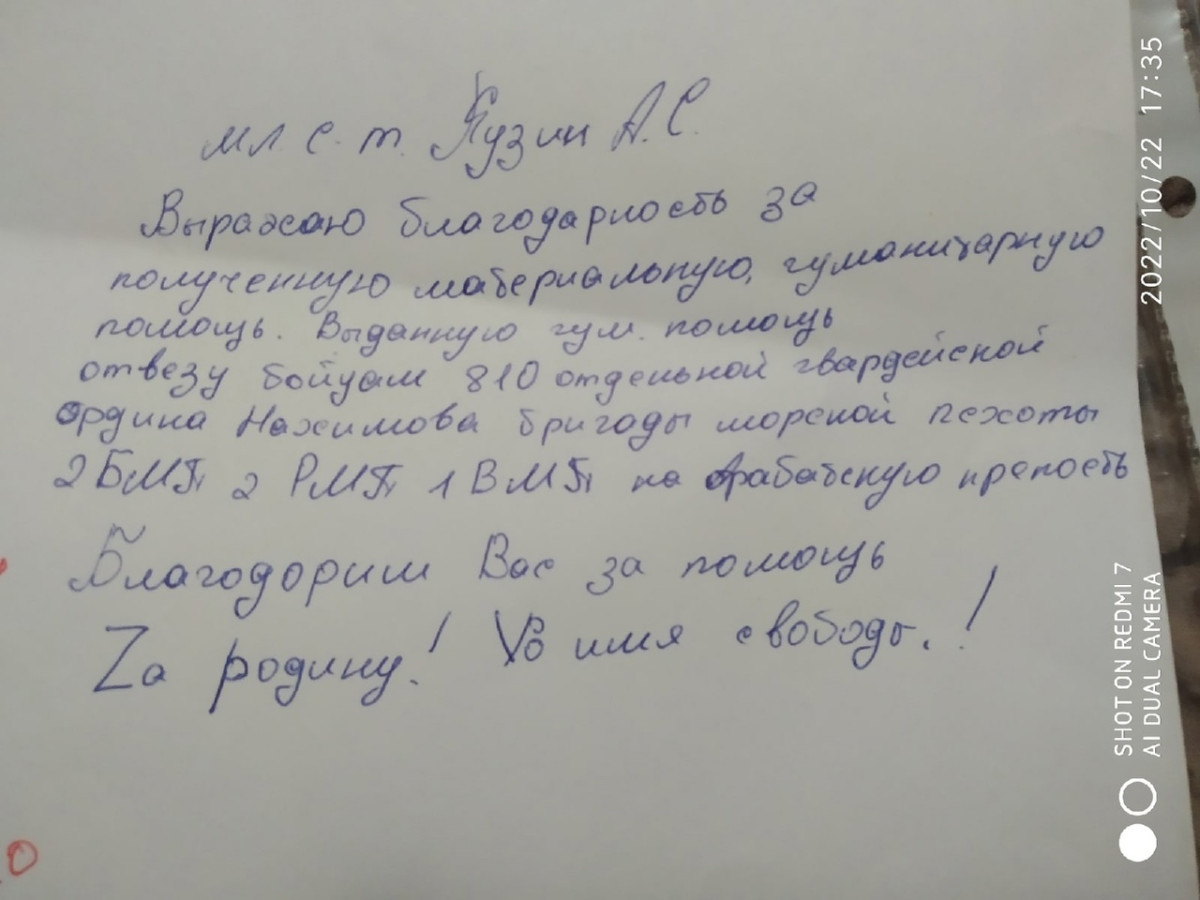 мл. с. т. Кузин А.С.
Выражаю благодарность за
полученную материальную, гуманитарную
помощь. Выданную гум. помощь
отвезу бойцам 810 отдельной гвардейской
ордина Нахимова бригады морской пехоты
2 БМП 2 РМП 1 ВМП на Арабатскую крепость
Благодорим Вас за помощь
Zа родину! Vо имя свободы.!
2022/10/22 17:35
SHOT ON REDMI 7
AI DUAL CAMERA